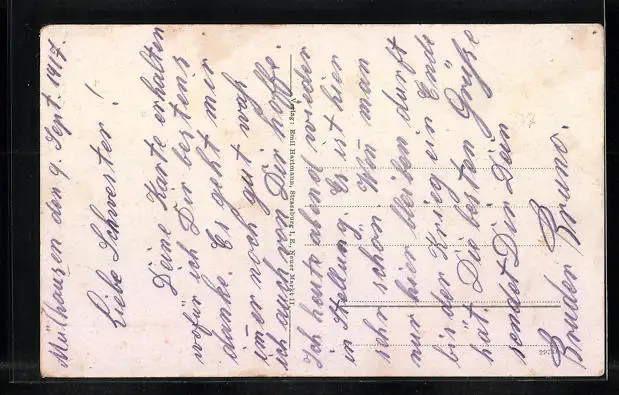 Mülhausen den 9. Sept. 1917.
Liebe Schwester!
Deine Karte erhalten
wofür ich Dir bestens
danke. Es geht mir
im̄er noch gut was
ich auch von Dir hoffe.
Ich heute abend wieder
in Stellung. Es ist hier
sehr schön. Wen man
nur hier bleiben durft
bis der Krieg ein Ende
hat. Die besten Grüße
sendet Dir Dein
Bruder Bruno.
Verlag: Emil Hartmann, Strassburg i. E., Neuer Markt 11